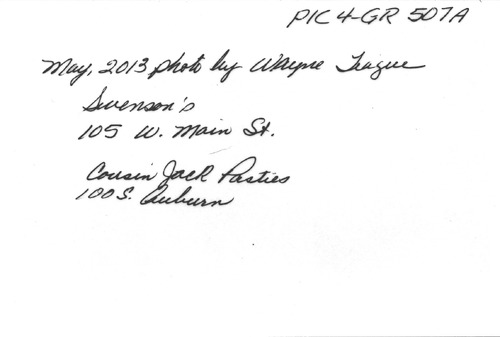 PIC 4-GR 507A
May, 2013 photo by Wayne Teague
Swenson's
105 W. Main St.
Cousin Jack Pasties
100 S. Auburn